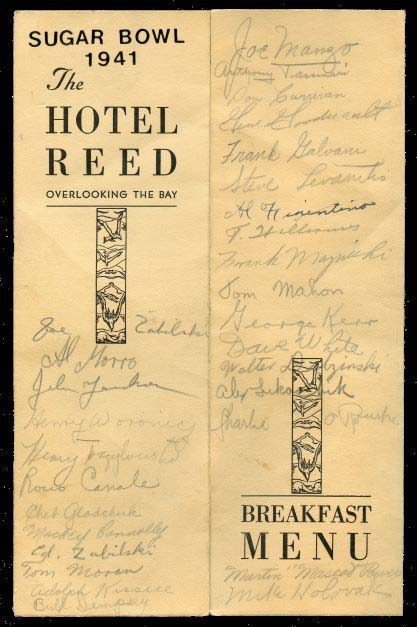 SUGAR BOWL
1941
The
HOTEL
REED
OVERLOOKING THE BAY
Joe Zabilski
Al Morro
Henry Woronicz
Henry
Rocco Canale
Chet Gladchuk
Mickey Connolly
Col. Zabilski
Tom Moran
Adolph Kissell
Bill Dempsey
Joe Mango
Anthony
Don Currivan
Gene Goodreault
Frank Galvani
Steve Levanitis
Al Fiorentino
T. Williams
Frank Maznicki
Tom Mahon
George Kerr
Dave White
Walter
Alex Lukachik
Charlie O'Rourke
BREAKFAST
MENU
Martin "Mascot"
Mike Holovak